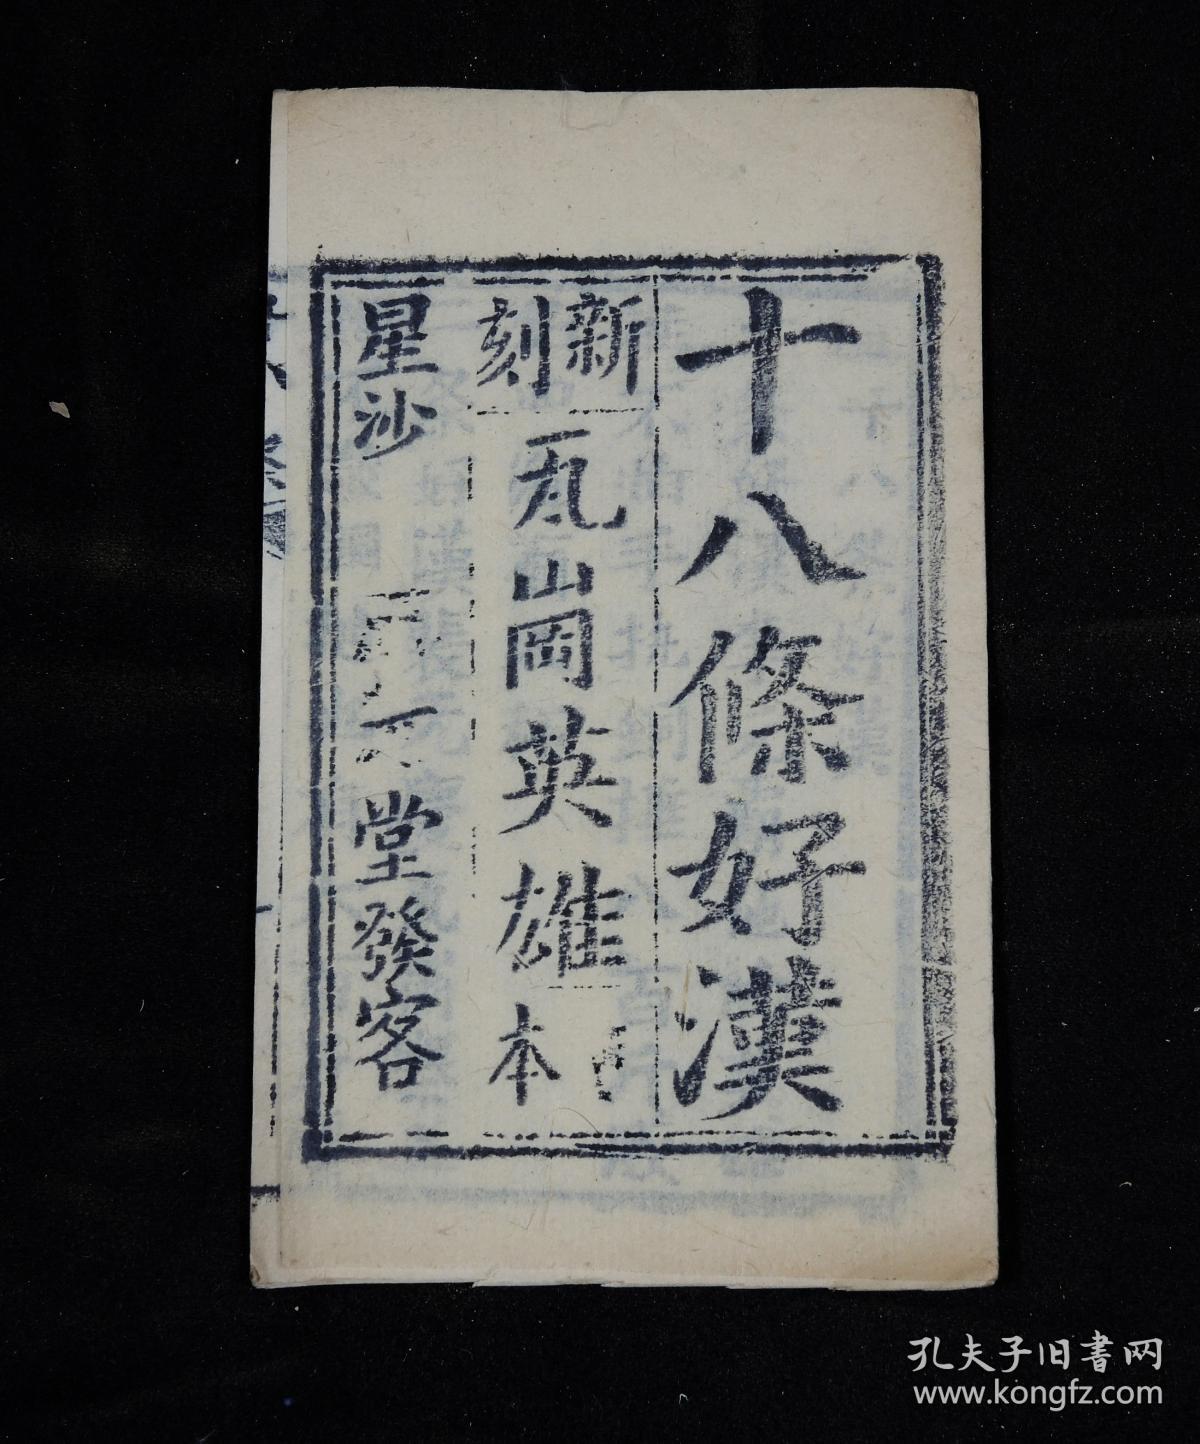 十八條好漢
新刻
瓦崗英雄
本
星沙
堂發客
孔夫子旧書网
www.kongfz.com